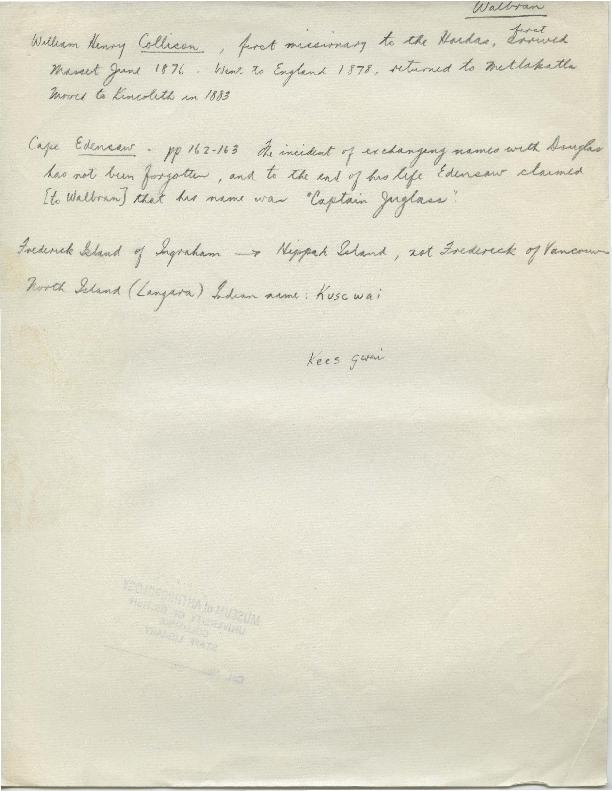 Walbran
William Henry Collison, first missionary to the Haidas, first arrived
Masset June 1876. Went to England 1878, returned to Metlakatla
Moved to Kincolith in 1883
Cape Edensaw - pp 162-163 The incident of exchanging names with Douglas
has not been forgotten, and to the end of his life Edensaw claimed
[to Walbran] that his name was "Captain Juglass".
Frederick Island of Ingraham → Hippah Island, not Frederick of Vancouver
North Island (Langara) Indian name: Kuscwai
Kees gwai
MUSEUM of ANTHROPOLOGY
UNIVERSITY OF BRITISH
COLUMBIA
STAFF LIBRARY